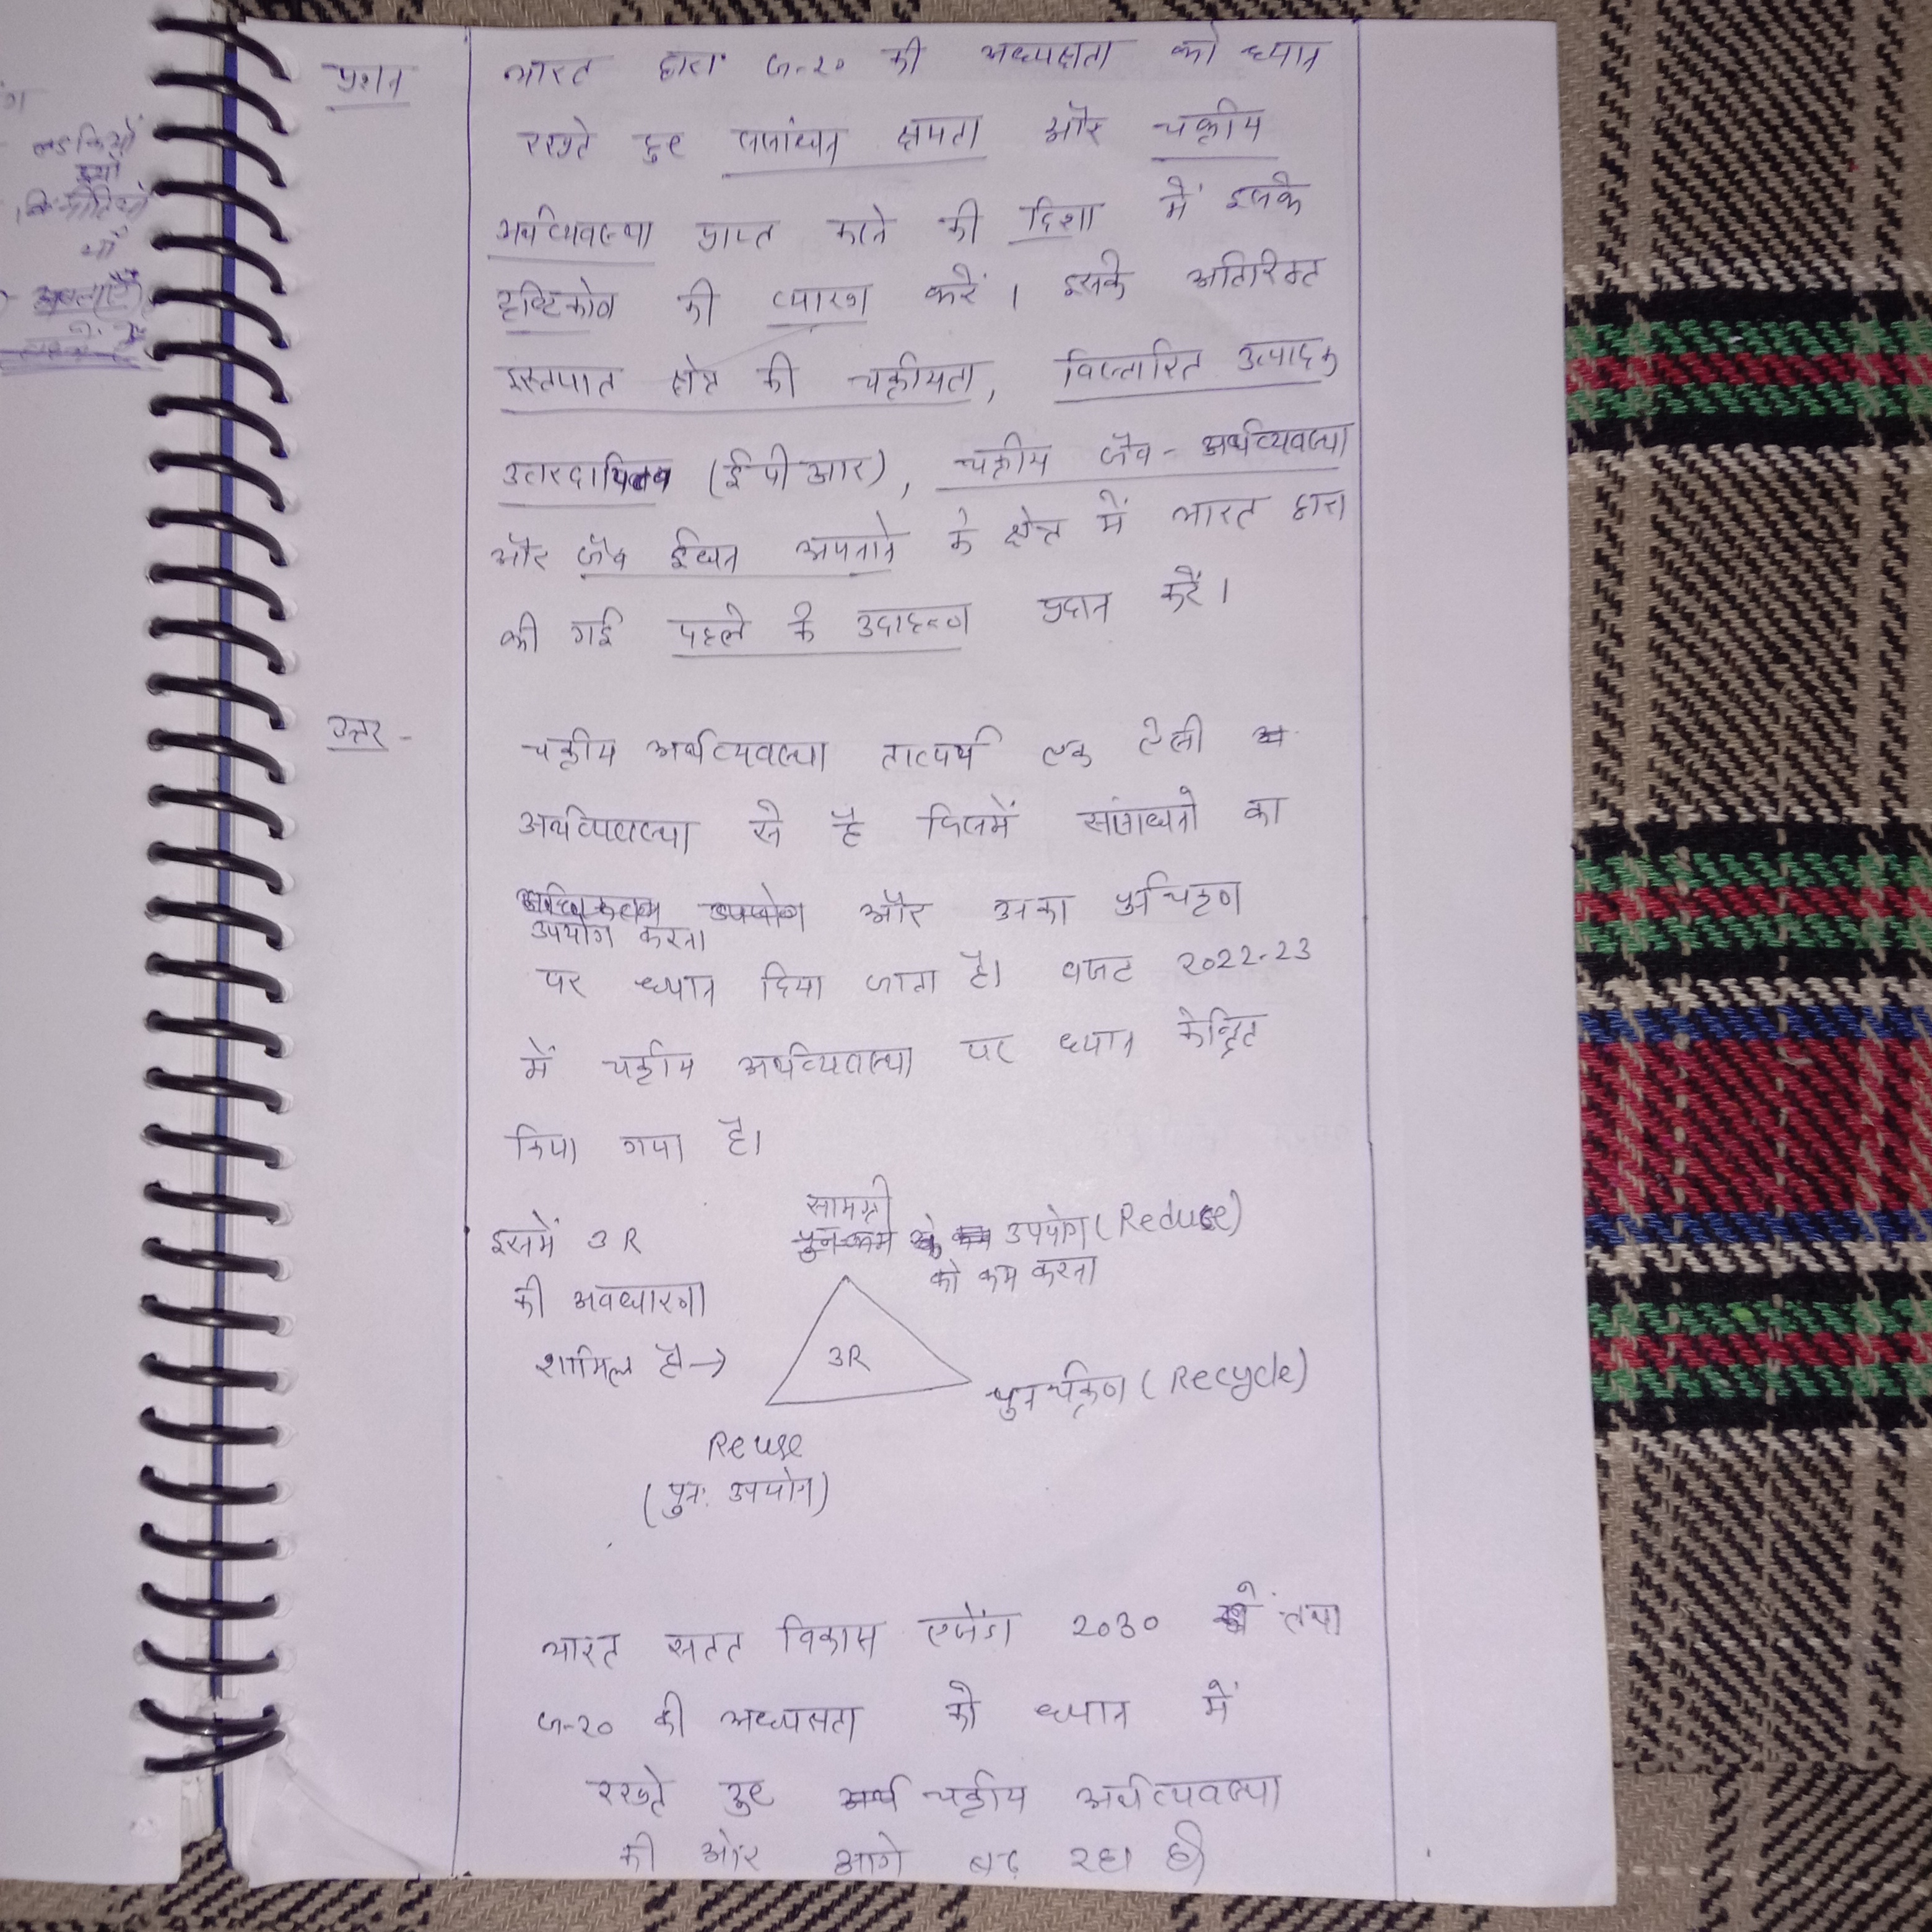 प्रश्न
भारत द्वारा जी-20 की अध्यक्षता को ध्यान
रखते हुए संसाधन क्षमता और चक्रीय
अर्थव्यवस्था प्राप्त करने की दिशा में इसके
दृष्टिकोण की व्याख्या करें । इसके अतिरिक्त
इस्तपात क्षेत्र की चक्रीयता, विस्तारित उत्पादक
उत्तरदायित्व (ईपीआर), चक्रीय जैव-अर्थव्यवस्था
और जैव ईंधन अपनाने के क्षेत्र में भारत द्वारा
की गई पहले के उदाहरण प्रदान करें ।
उत्तर -
चक्रीय अर्थव्यवस्था तात्पर्य एक ऐसी
अर्थव्यवस्था से है जिसमें संसाधनो का
उपयोग और उनका पुर्नचक्रण
उपयोग करना
पर ध्यान दिया जाता है। बजट 2022-23
में चक्रीय अर्थव्यवस्था पर ध्यान केन्द्रित
किया गया है।
इसमें 3R
की अवधारणा
शामिल है →
सामग्री
उपयोग (Reduce)
को कम करना
3R
पुनर्चक्रण (Recycle)
Reuse
(पुनः उपयोग)
भारत सतत विकास एजेंडा 2030 तथा
जी-20 की अध्यक्षता को ध्यान में
रखते हुए चक्रीय अर्थव्यवस्था
की ओर आगे बढ़ रहा है।
लडकियों